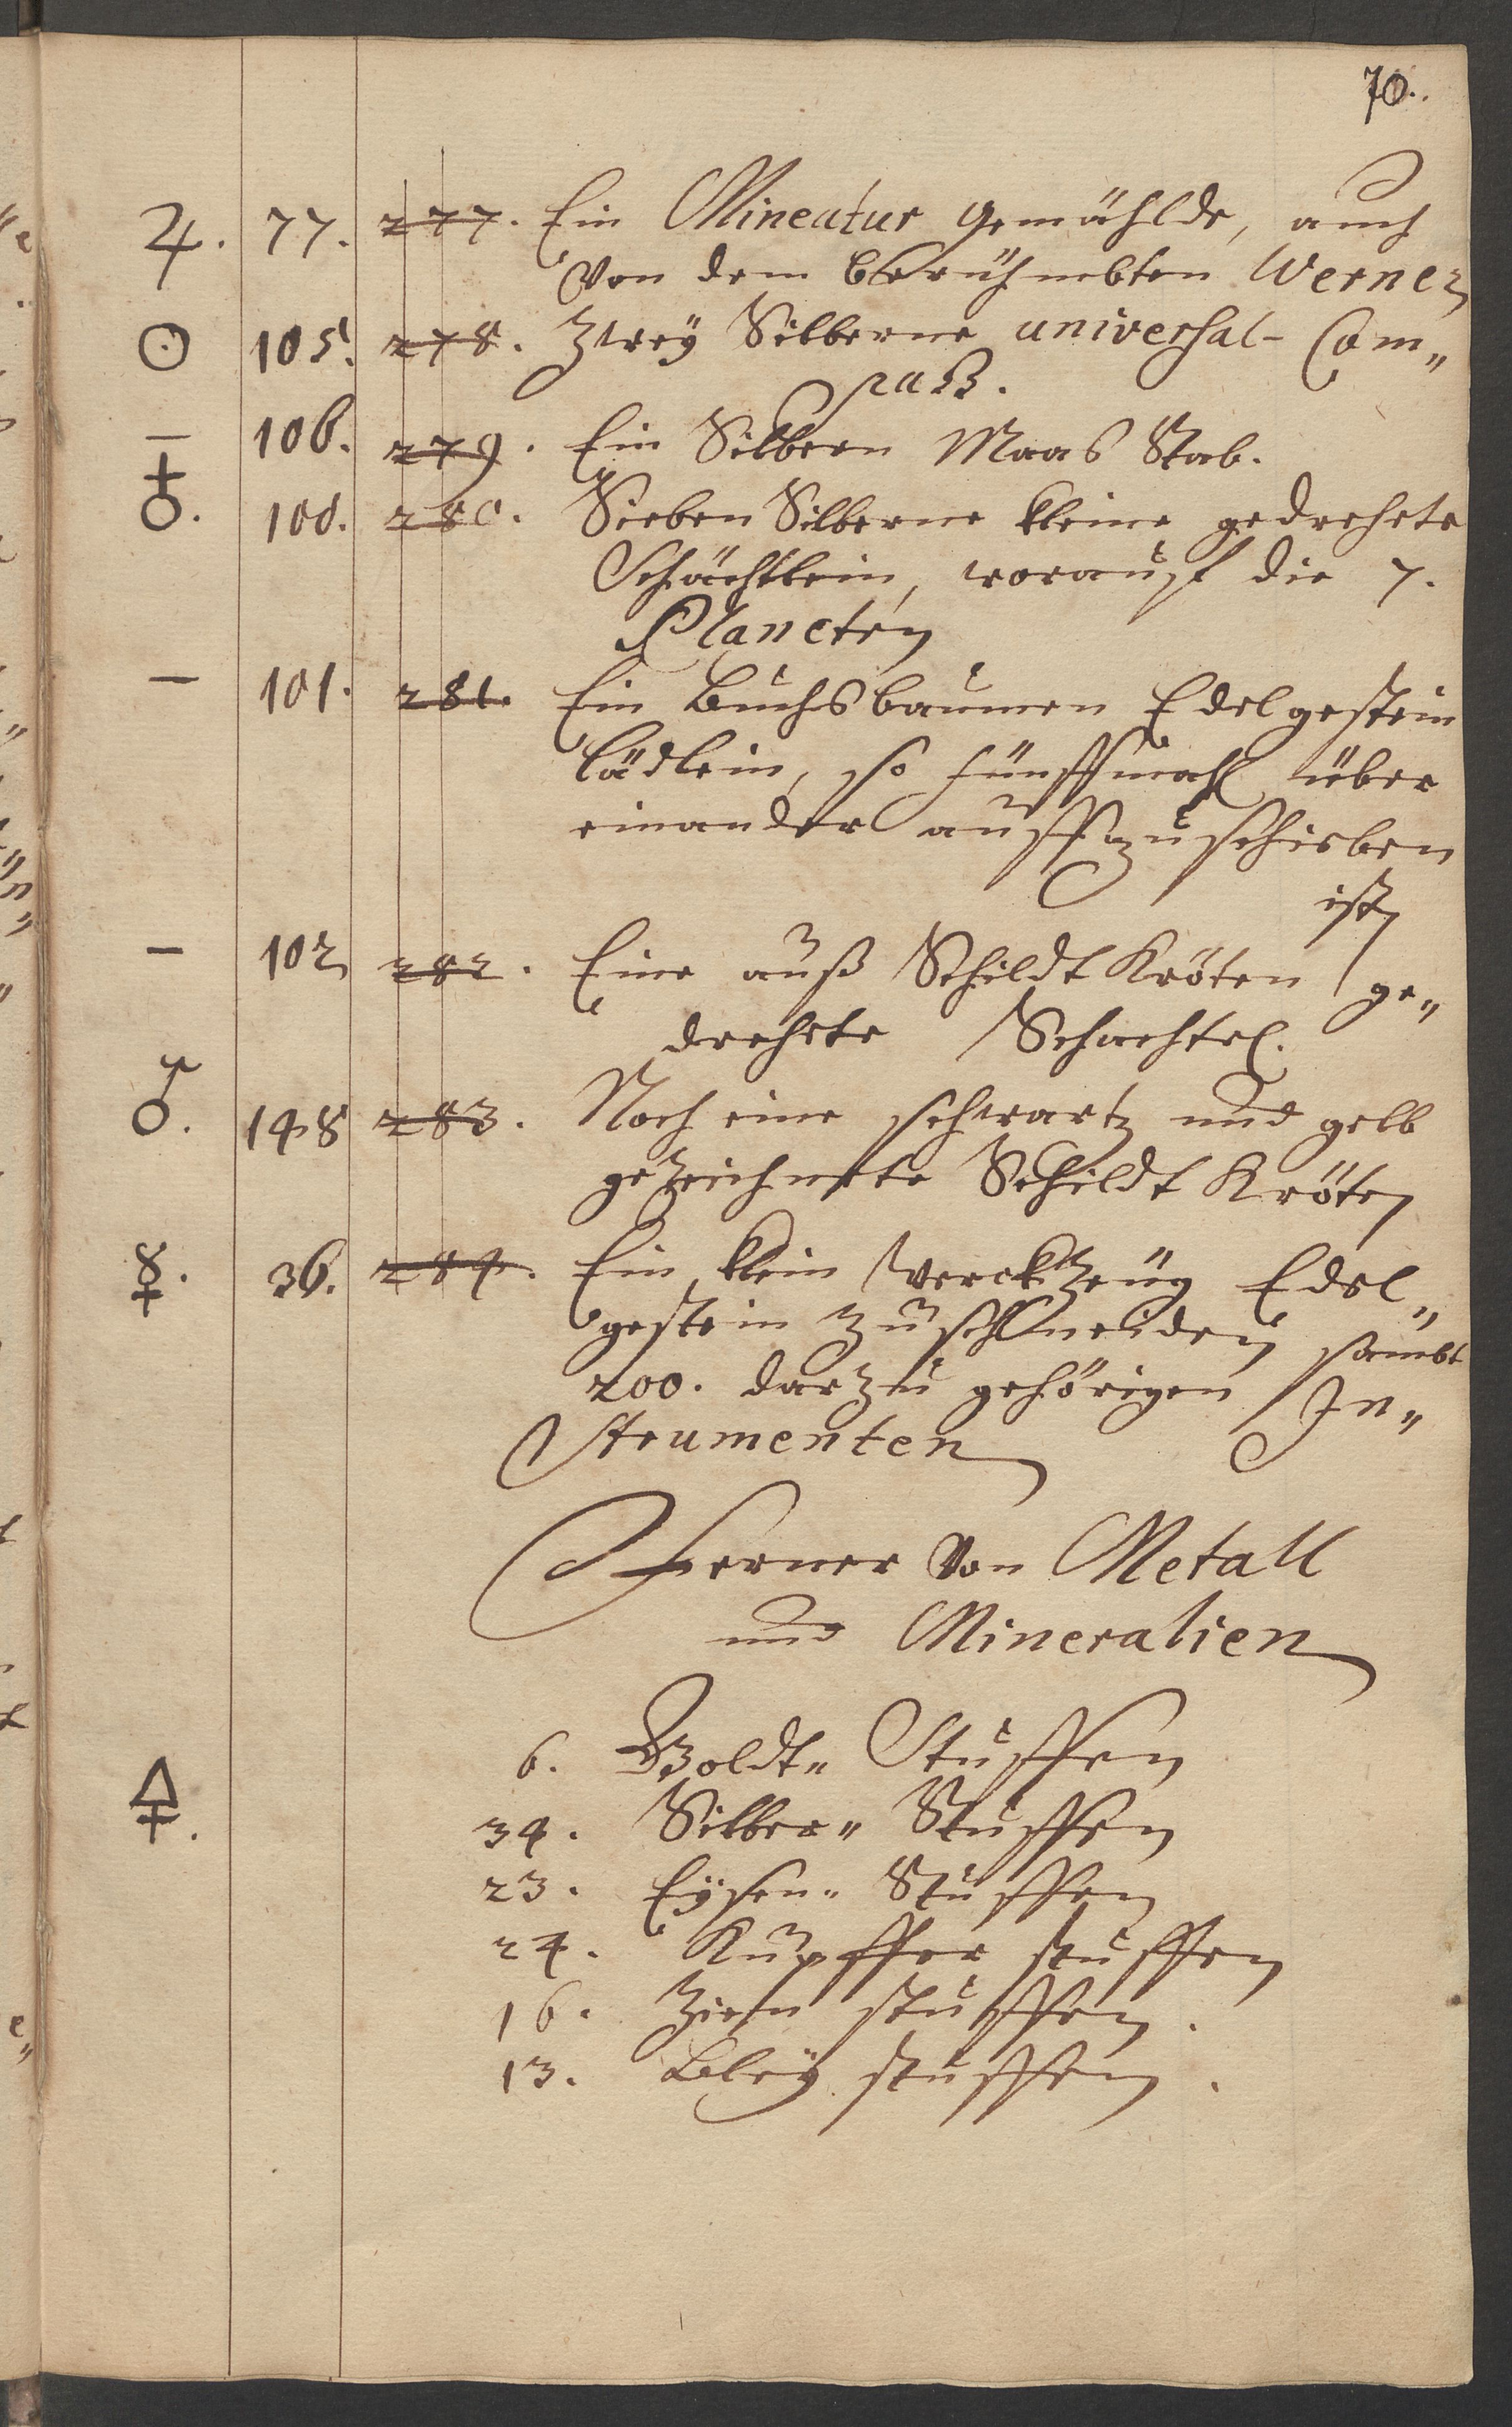 70.
♃. 77. 277. Ein Mineatur gemählde, auch
Von dem berühmbten Werner
☉ 105. 278. Zweÿ Silberne universal- Com„
paß.
— 106. 279. Ein Silbern Maas Stab.
♁. 100. 280. Sieben Silberne kleine gedrehete
Schächtlein, worauf die 7.
Planeten
— 101. 281. Ein Buchsbaumen Edelgestein
lädlein, so fünffmahl über
einander aufzuschieben
ist
— 102 282. Eine auß Schildt Kröten ge„
drehete Schachtel.
♂. 148 283. Noch eine schwartz und gelb
gezeichnete Schildt Kröten
☿. 36. 284. Ein klein Werckzeüg Edel„
gestein zuschneiden sambt
200. darzu gehörigen In„
strumenten
Ferner Von Metall
und Mineralien
6. Goldt„ Stuffen
🜍. 34. Silber„ Stuffen
23. Eÿsen„ Stuffen
24. Kupffer stuffen
16. Zien stuffen.
13. Bleÿ stuffen.